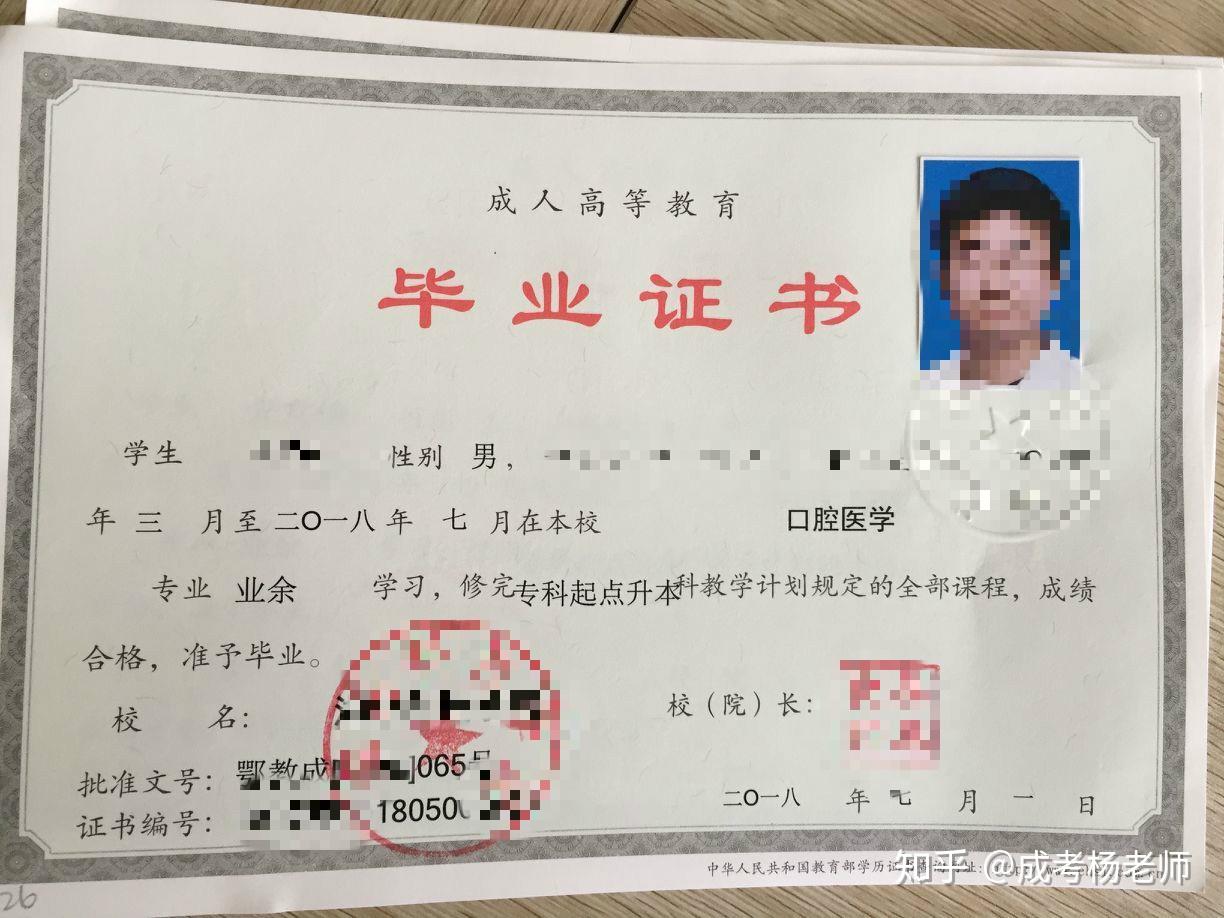 成人高等教育
毕业证书
学生 性别 男，
年 三 月至 二〇一八 年 七 月在本校 口腔医学
专业 业余 学习，修完专科起点升本科教学计划规定的全部课程，成绩
合格，准予毕业。
校 名：
校（院）长：
批准文号：鄂教成 ]065号
证书编号： 18050
二〇一八 年 七 月 一 日
中华人民共和国教育部学历证书查询网址：
知乎 @成考杨老师
26